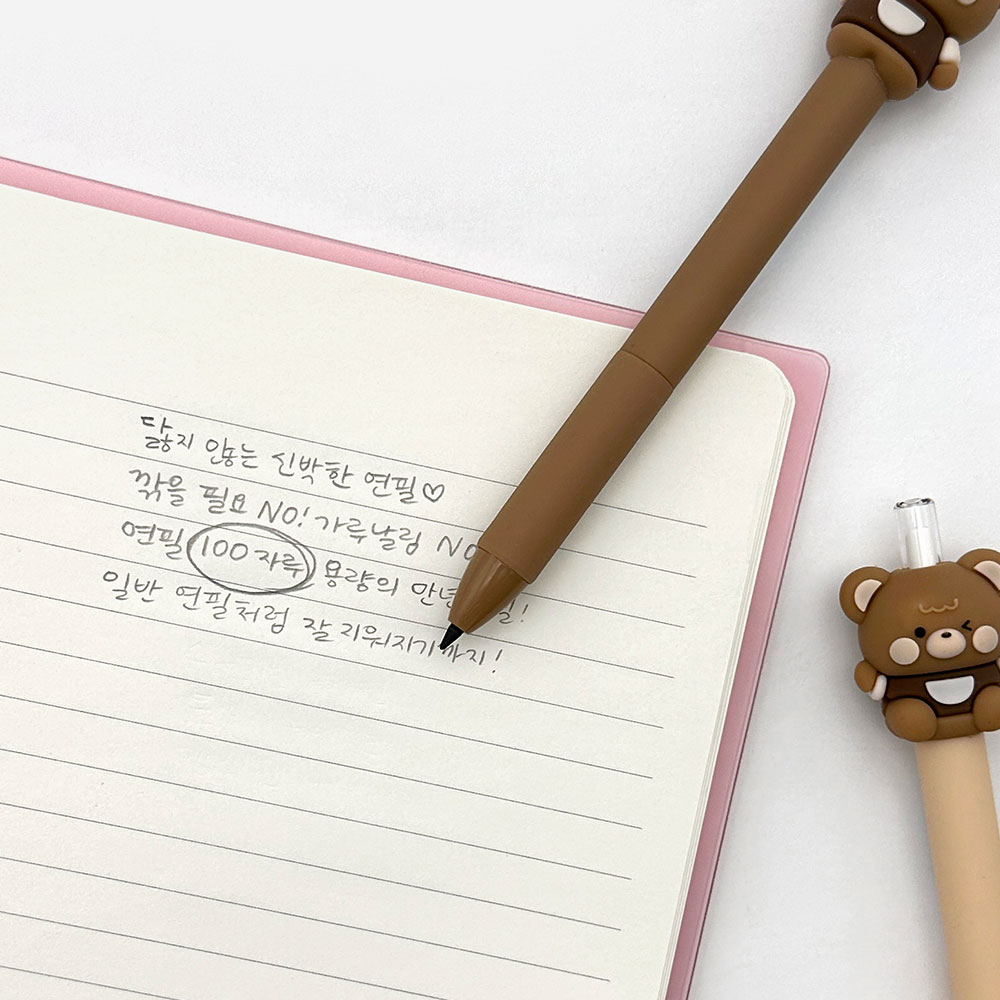 닳지 않는 신박한 연필♡
깎을 필요 NO! 가루날림 NO
연필 100자루 용량의 안녕 필!
일반 연필처럼 잘 지워지기까지!